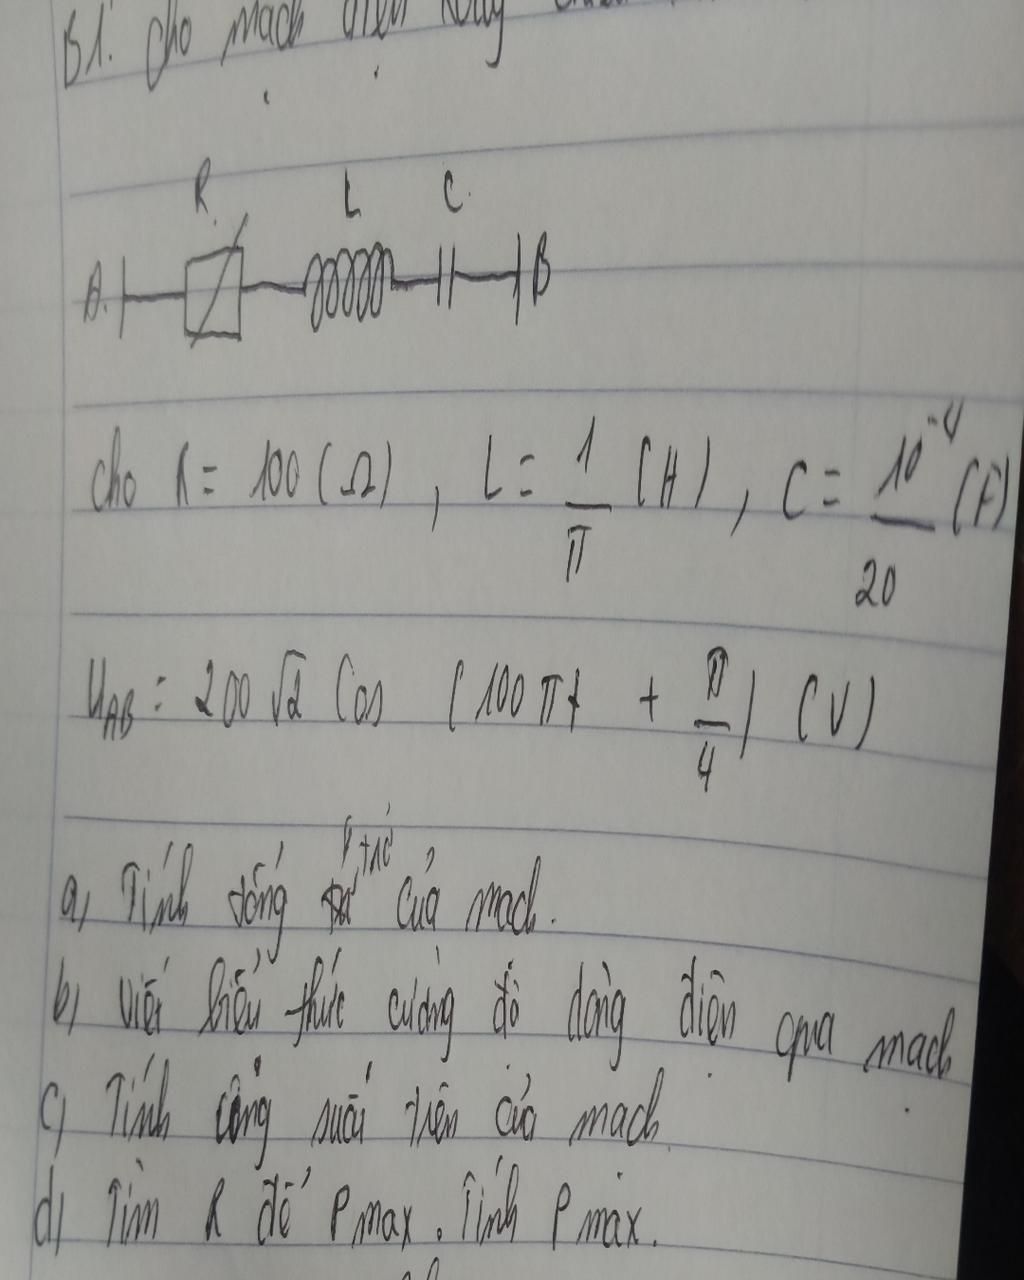 B1. Cho mạch điện xoay
R L C
A B
Cho R = 100 (Ω) , L = 1/π (H) , C = 10^-4/20 (F)
U_AB = 200√2 Cos (100πt + π/4) (V)
a, Tính tổng trở của mạch.
b, viết biểu thức cường độ dòng điện qua mạch
c, Tính công suất trên của mạch
d, Tìm R để Pmax. Tính Pmax.